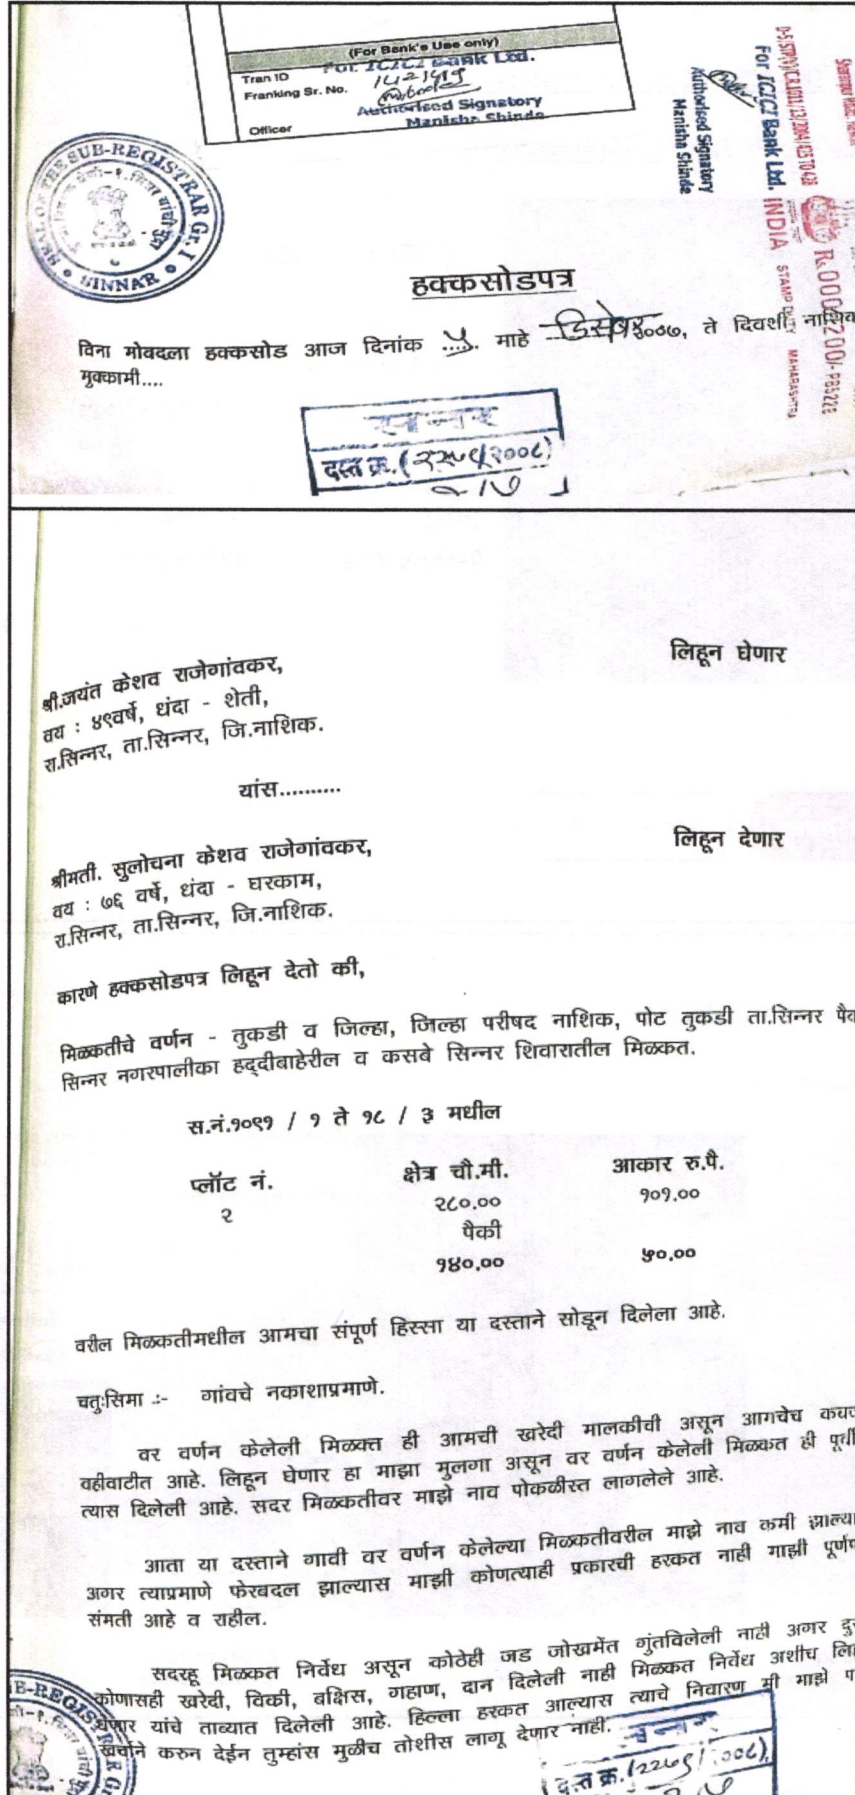 (For Bank's Use only)
Tran ID
For ICICI Bank Ltd.
Franking Sr. No.
Authorised Signatory
Officer
Manisha Shinde
SEAL OF THE SUB-REGISTRAR (Gr. I
SINNAR
For ICICI Bank Ltd.
Authorised Signatory
Manisha Shinde
INDIA
STAMP DUTY
MAHARASHTRA
हक्कसोडपत्र
विना मोबदला हक्कसोड आज दिनांक ..५.. माहे डिसेंबर २००७, ते दिवशी
मुक्कामी....
दस्त क्र.
लिहून घेणार
श्री.जयंत केशव राजेगांवकर,
वय : ४९वर्षे, धंदा - शेती,
रा.सिन्नर, ता.सिन्नर, जि.नाशिक.
यांस..........
लिहून देणार
श्रीमती. सुलोचना केशव राजेगांवकर,
वय : ७६ वर्षे, धंदा - घरकाम,
रा.सिन्नर, ता.सिन्नर, जि.नाशिक.
कारणे हक्कसोडपत्र लिहून देतो की,
मिळकतीचे वर्णन - तुकडी व जिल्हा, जिल्हा परीषद नाशिक, पोट तुकडी ता.सिन्नर
सिन्नर नगरपालीका हद्दीबाहेरील व कसबे सिन्नर शिवारातील मिळकत.
स.नं.१०९१ / १ ते १८ / ३ मधील
प्लॉट नं. क्षेत्र चौ.मी. आकार रु.पै.
२ २८०.०० १०१.००
पैकी
१४०.०० ५०.००
वरील मिळकतीमधील आमचा संपूर्ण हिस्सा या दस्ताने सोडून दिलेला आहे.
चतुःसिमा :- गांवचे नकाशाप्रमाणे.
वर वर्णन केलेली मिळकत ही आमची खरेदी मालकीची असून आमचेच
वहीवाटीत आहे. लिहून घेणार हा माझा मुलगा असून वर वर्णन केलेली मिळकत ही
त्यास दिलेली आहे. सदर मिळकतीवर माझे नाव पोकळीस्त लागलेले आहे.
आता या दस्ताने गावी वर वर्णन केलेल्या मिळकतीवरील माझे नाव कमी
अगर त्याप्रमाणे फेरबदल झाल्यास माझी कोणत्याही प्रकारची हरकत नाही माझी
संमती आहे व राहील.
सदरहू मिळकत निर्वेध असून कोठेही जड जोखमेंत गुंतविलेली नाही अगर
कोणासही खरेदी, विकी, बक्षिस, गहाण, दान दिलेली नाही मिळकत निर्वेध अशीच
घेणार यांचे ताब्यात दिलेली आहे. हिल्ला हरकत आल्यास त्याचे निवारण मी माझे
खर्चाने करुन देईन तुम्हांस मुळीच तोशीस लागू देणार नाही.
दस्त क्र.